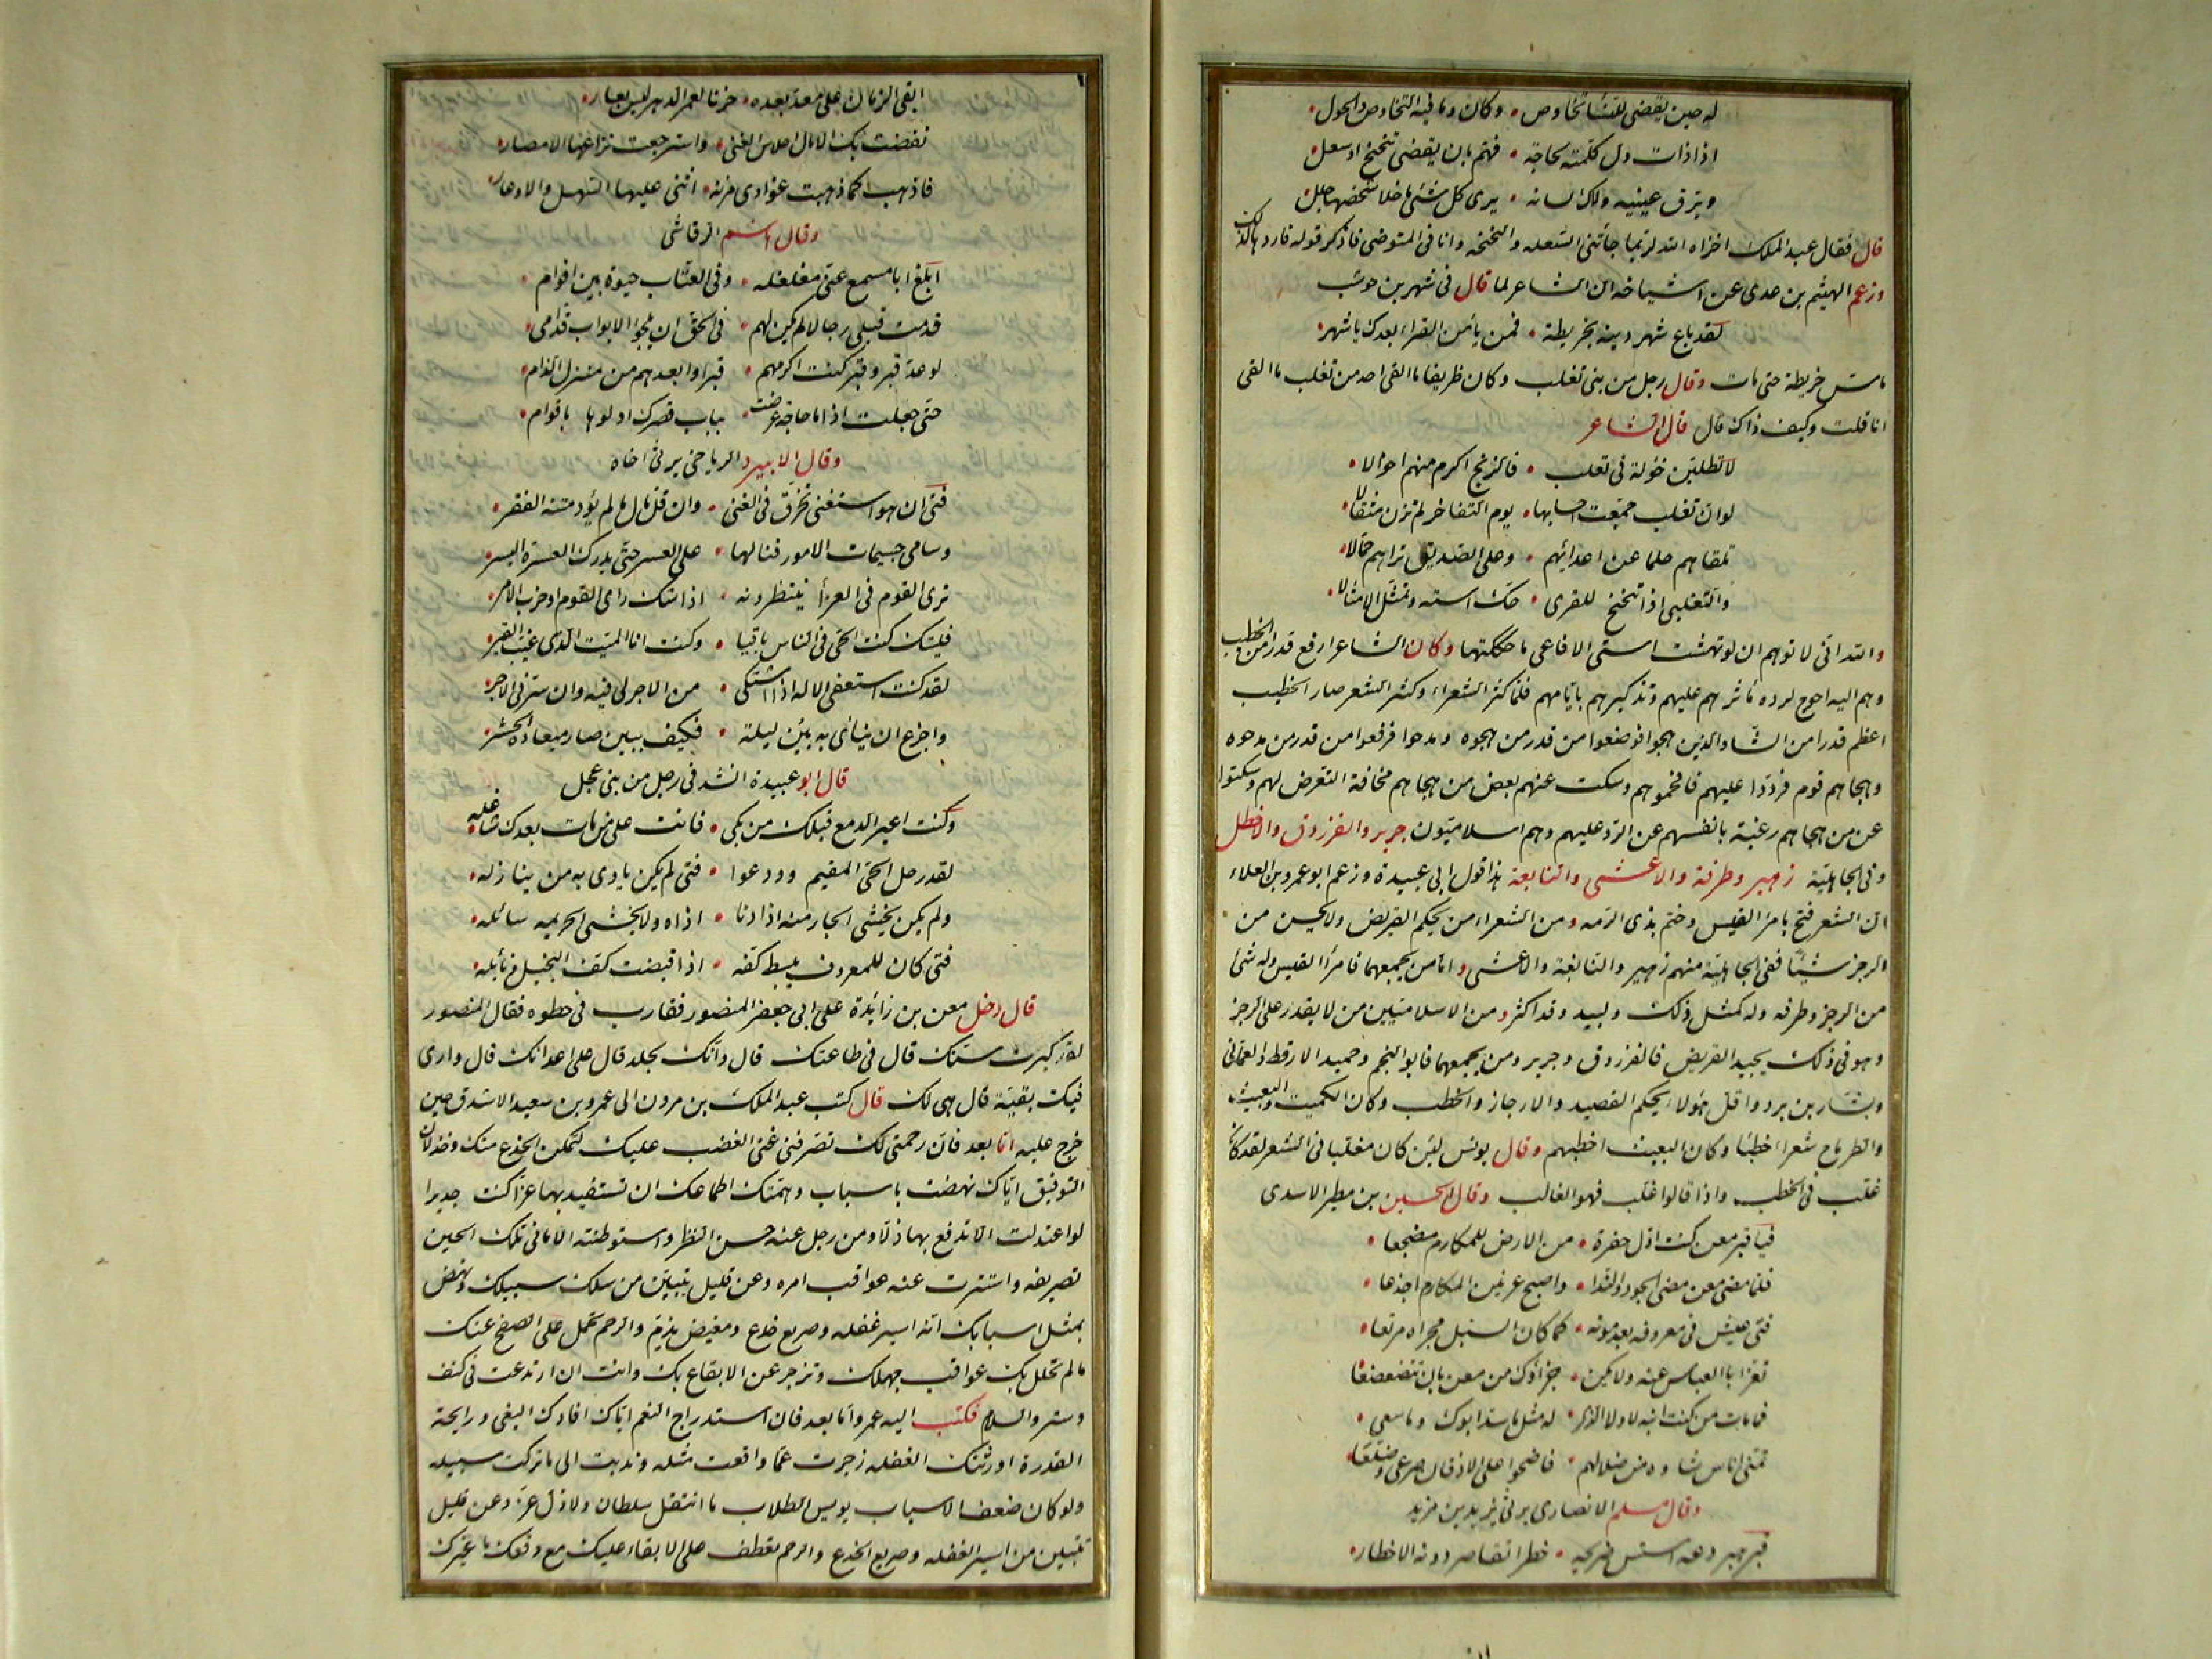 له حين يقضى للنساء تخاوص • وكان وما فيه التخاوص والحول •
اذا ذات دل كلمته بحاجة • فهم بان يقضى تنحنح او سعل •
وبرق عينيه ولاك لسانه • يرى كل شئ ما خلا شخصها جلل •
قال فقال عبد الملك اخزاه الله لربما جأتنى السعله والنحنحه وانا فى المتوضى فاذكر قوله فاردها لذلك
وزعم الهيثم بن عدى عن اشياخه ان الشاعر لما قال فى شهر بن حوشب
لقد باع شهر دينه بخريطة • فمن يأمن القراء بعدك يا شهر •
مامس خريطة حتى مات وقال رجل من بنى تغلب وكان ظريفا ما القى احد من تغلب ما القى
انا قلت وكيف ذاك قال قال الشاعر
لا تطلبن خؤلة فى تغلب • فالزنج اكرم منهم اخوالا •
لو ان تغلب جمعت احسابها • يوم التفاخر لم تزن مثقالا •
تلقاهم حلما عن اعدائهم • وعلى الصديق تراهم جهالا •
والتغلبى اذا تنحنح للقرى • حك استه وتمثل الامثالا •
والله انى لا توهم ان لو نهشت استى الافاعى ما حككتها وكان الشاعر ارفع قدرا من الخطيب
وهم اليه احوج لرده مآثرهم عليهم وتذكيرهم بايامهم فلما كثر الشعراء وكثر الشعر صار الخطيب
اعظم قدرا من الشاعر والذين هجوا فوضعوا من قدر من هجوه ومدحوا فرفعوا من قدر من مدحوه
وهجاهم قوم فردوا عليهم فافحموهم وسكت عنهم بعض من هجاهم مخافة التعرض لهم وسكتوا
عن من هجاهم رغبة بانفسهم عن الرد عليهم وهم اسلاميون جرير والفرزدق والاخطل
وفى الجاهلية زهير وطرفة والاعشى والنابغة هذا قول ابى عبيدة وزعم ابو عمرو بن العلاء
ان الشعر فتح بامرأ القيس وختم بذى الرمه ومن الشعراء من يحكم القريض ولا يحسن من
الرجز شيئا ففى الجاهلية منهم زهير والنابغة والاعشى واما من يجمعهما فامرأ القيس وله شئ
من الرجز وطرفه وله كمثل ذلك ولبيد وقد اكثر ومن الاسلاميين من لا يقدر على الرجز
وهو فى ذلك يجيد القريض فالفرزدق وجرير ومن يجمعهما فابو النجم وحميد الارقط والعمانى
وبشار بن برد واقل هؤلا يحكم القصيد والارجاز والخطب وكان الكميت والبعيث
والطرماح شعراء خطبا وكان البعيث اخطبهم وقال يونس لئن كان مغلبا فى الشعر لقد كان
غلب فى الخطب واذا قالوا غلب فهو الغالب وقال الحسين بن مطير الاسدى
فيا قبر معن كنت اول حفرة • من الارض للمكارم مضجعا •
فلما مضى معن مضى الجود والندا • واصبح عرنين المكارم اجذعا •
فتى عيش فى معروفه بعد موته • كما كان السيل مجراه مرتعا •
تعز ابا العباس عنه ولا يكن • جزاؤك من معن بان تتضعضعا •
فما مات من كنت ابنه لا ولا الذى • له مثل ما سدا ابوك وما سعى •
تمنى اناس شاوه من ضلالهم • فاضحوا على الاذقان صرعى وضلعا •
وقال مسلم الانصارى يرثى يزيد بن مزيد
قبر ببردعه استسر ضريحه • خطرا تقاصر دونه الاخطار •
ابقى الزمان على معد بعده • حزنا لعمر الدهر ليس بعار •
نفضت بك الامال احلاس الغنى • واسترجعت نزاعها الامصار •
فاذهب كما ذهبت غوادى مزنه • اثنى عليها السهل والاوعار •
وقال هاشم الرقاشى
ابلغ ابا مسمع عنى مغلغله • وفى العتاب حيوة بين اقوام •
قدمت قبلى رجالا لم يكن لهم • فى الحق ان يلجوا الابواب قدامى •
لو عد قبر وقبر كنت اكرمهم • قبرا وابعدهم من منزل الذام •
حتى جعلت اذا ما حاجة عرضت • بباب قصرك ادلوها باقوام •
وقال الابيرد الرياحى يرثى اخاه
فتى ان هو استغنى تخرق فى الغنى • وان قل مال لم يؤد متنه الفقر •
وسامى جسيمات الامور فنالها • على العسر حتى يدرك العسرة اليسر •
ترى القوم فى العزاء ينتظرونه • اذا شك راى القوم او حزب الامر •
فليتك كنت الحى فى الناس باقيا • وكنت انا الميت الذى غيب القبر •
لقد كنت استعفى الاله اذا اشتكى • من الاجر لى فيه وان سرنى الاجر •
واجزع ان ينأى به بين ليلة • فكيف ببين صار ميعاده الحشر •
قال ابو عبيدة انشد فى رجل من بنى عجل
وكنت اعير الدمع قبلك من بكى • فانت على من مات بعدك شاغله •
لقد رحل الحى المقيم وودعوا • فتى لم يكن ياذى به من ينازله •
ولم يكن يخشى الجار منه اذا دنا • اذاه ولا يخشى الحريمه سائله •
فتى كان للمعروف يبسط كفه • اذا قبضت كف البخيل ونائله •
قال دخل معن بن زائدة على ابى جعفر المنصور فقارب فى خطوه فقال المنصور
لقد كبرت سنك قال فى طاعتك قال وانك لجلد قال على اعدائك قال وارى
فيك بقية قال هى لك قال كتب عبد الملك بن مرون الى عمرو بن سعيد الاشدق حين
خرج عليه اما بعد فان رحمتى لك تصرفنى عن الغضب عليك لتمكن الخدع منك وخذلان
التوفيق اياك نهضت باسباب وهمتك اطماعك ان تستفيد بها عزا كنت جديرا
لو اعتدلت الا تدفع بها ذلا ومن رحل عنه حسن النظر واستوطنته الامانى تلك الحين
تصريفه واستترت عنه عواقب امره وعن قليل يتبين من سلك سبيلك ونهض
بمثل اسبابك انه اسير غفله وصريع خدع ومغيض ندم والرحم تحمل على الصفح عنك
مالم تحلل بك عواقب جهلك وتزجر عن الايقاع بك وانت ان ارتدعت فى كنف
وستر والسلام فكتب اليه عمرو اما بعد فان استدراج النعم اياك افادك البغى ورايحة
القدرة اورثتك الغفله زجرت عما واقعت مثله وندبت الى ما تركت سبيله
ولو كان ضعف الاسباب يويس الطلاب ما انتقل سلطان ولا ذل عز وعن قليل
تتبين من اسير الغفله وصريع الخدع والرحم تعطف على الابقاء عليك مع دفعك ما غيرك